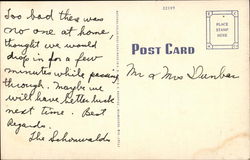 Too bad there was
no one at home,
thought we would
drop in for a few
minutes while passing
through. maybe we
will have better luck
next time. Best
Regards.
The Schonwalds
22199
POST CARD
PLACE
STAMP
HERE
Mr & Mrs Dunbar